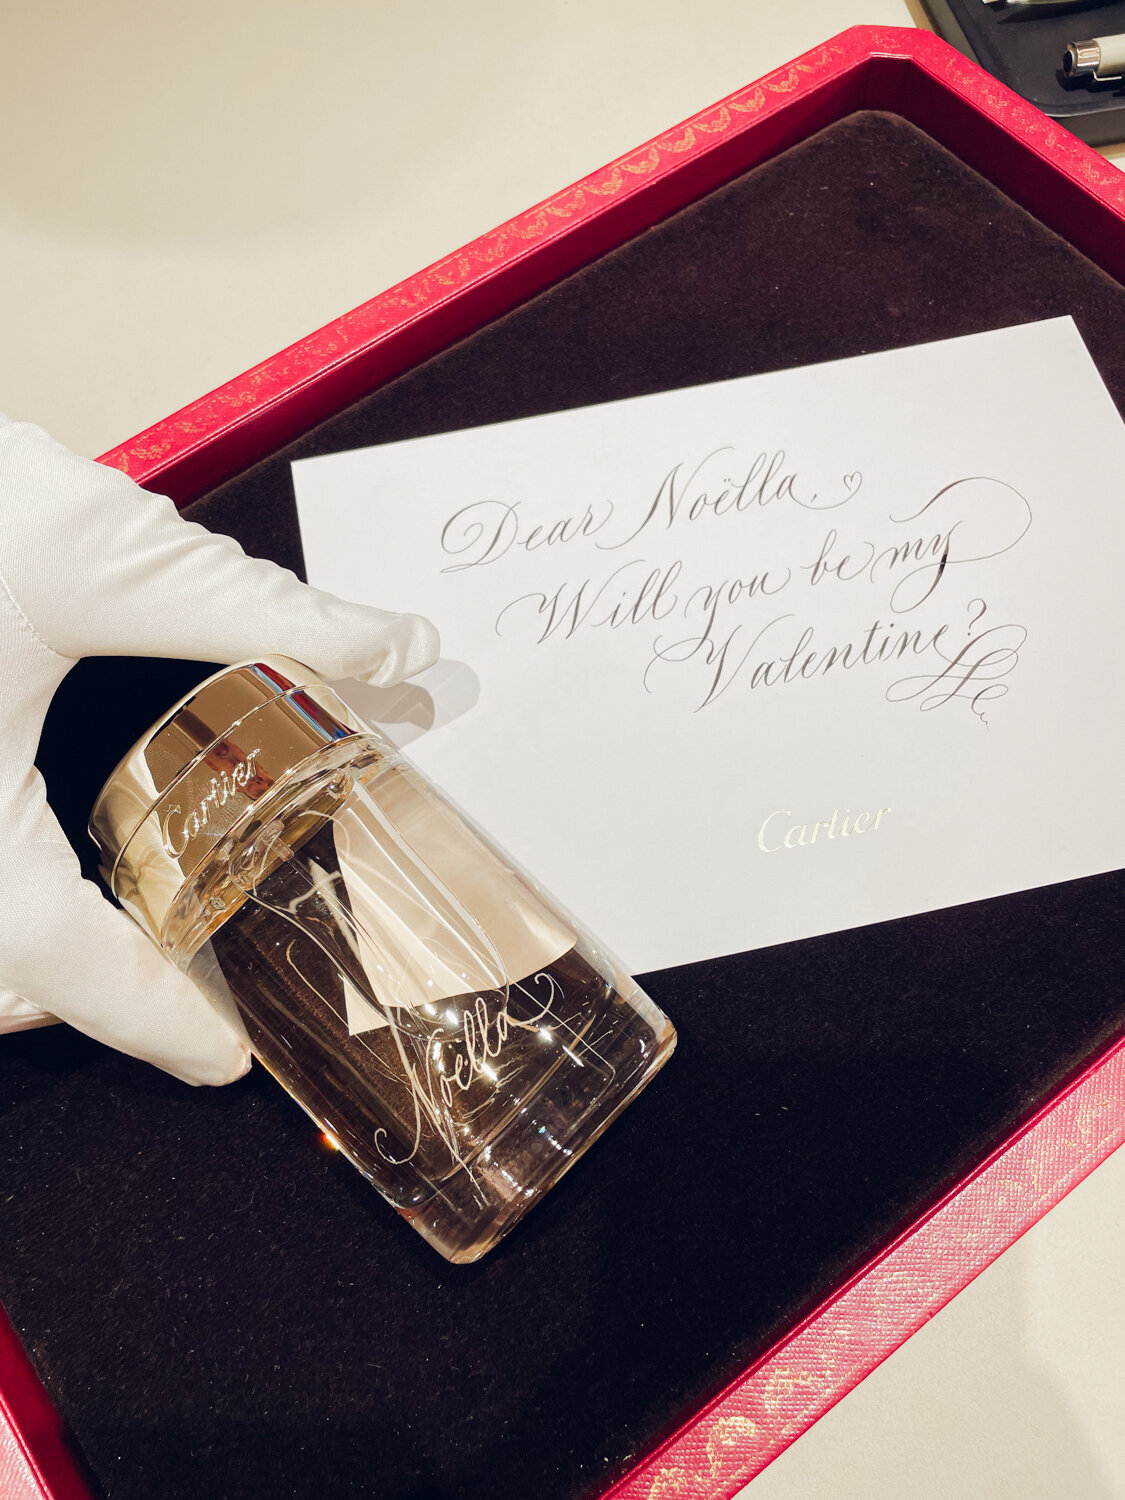 Dear Noëlla, ♡
Will you be my
Valentine?
Cartier
Cartier
Noëlla